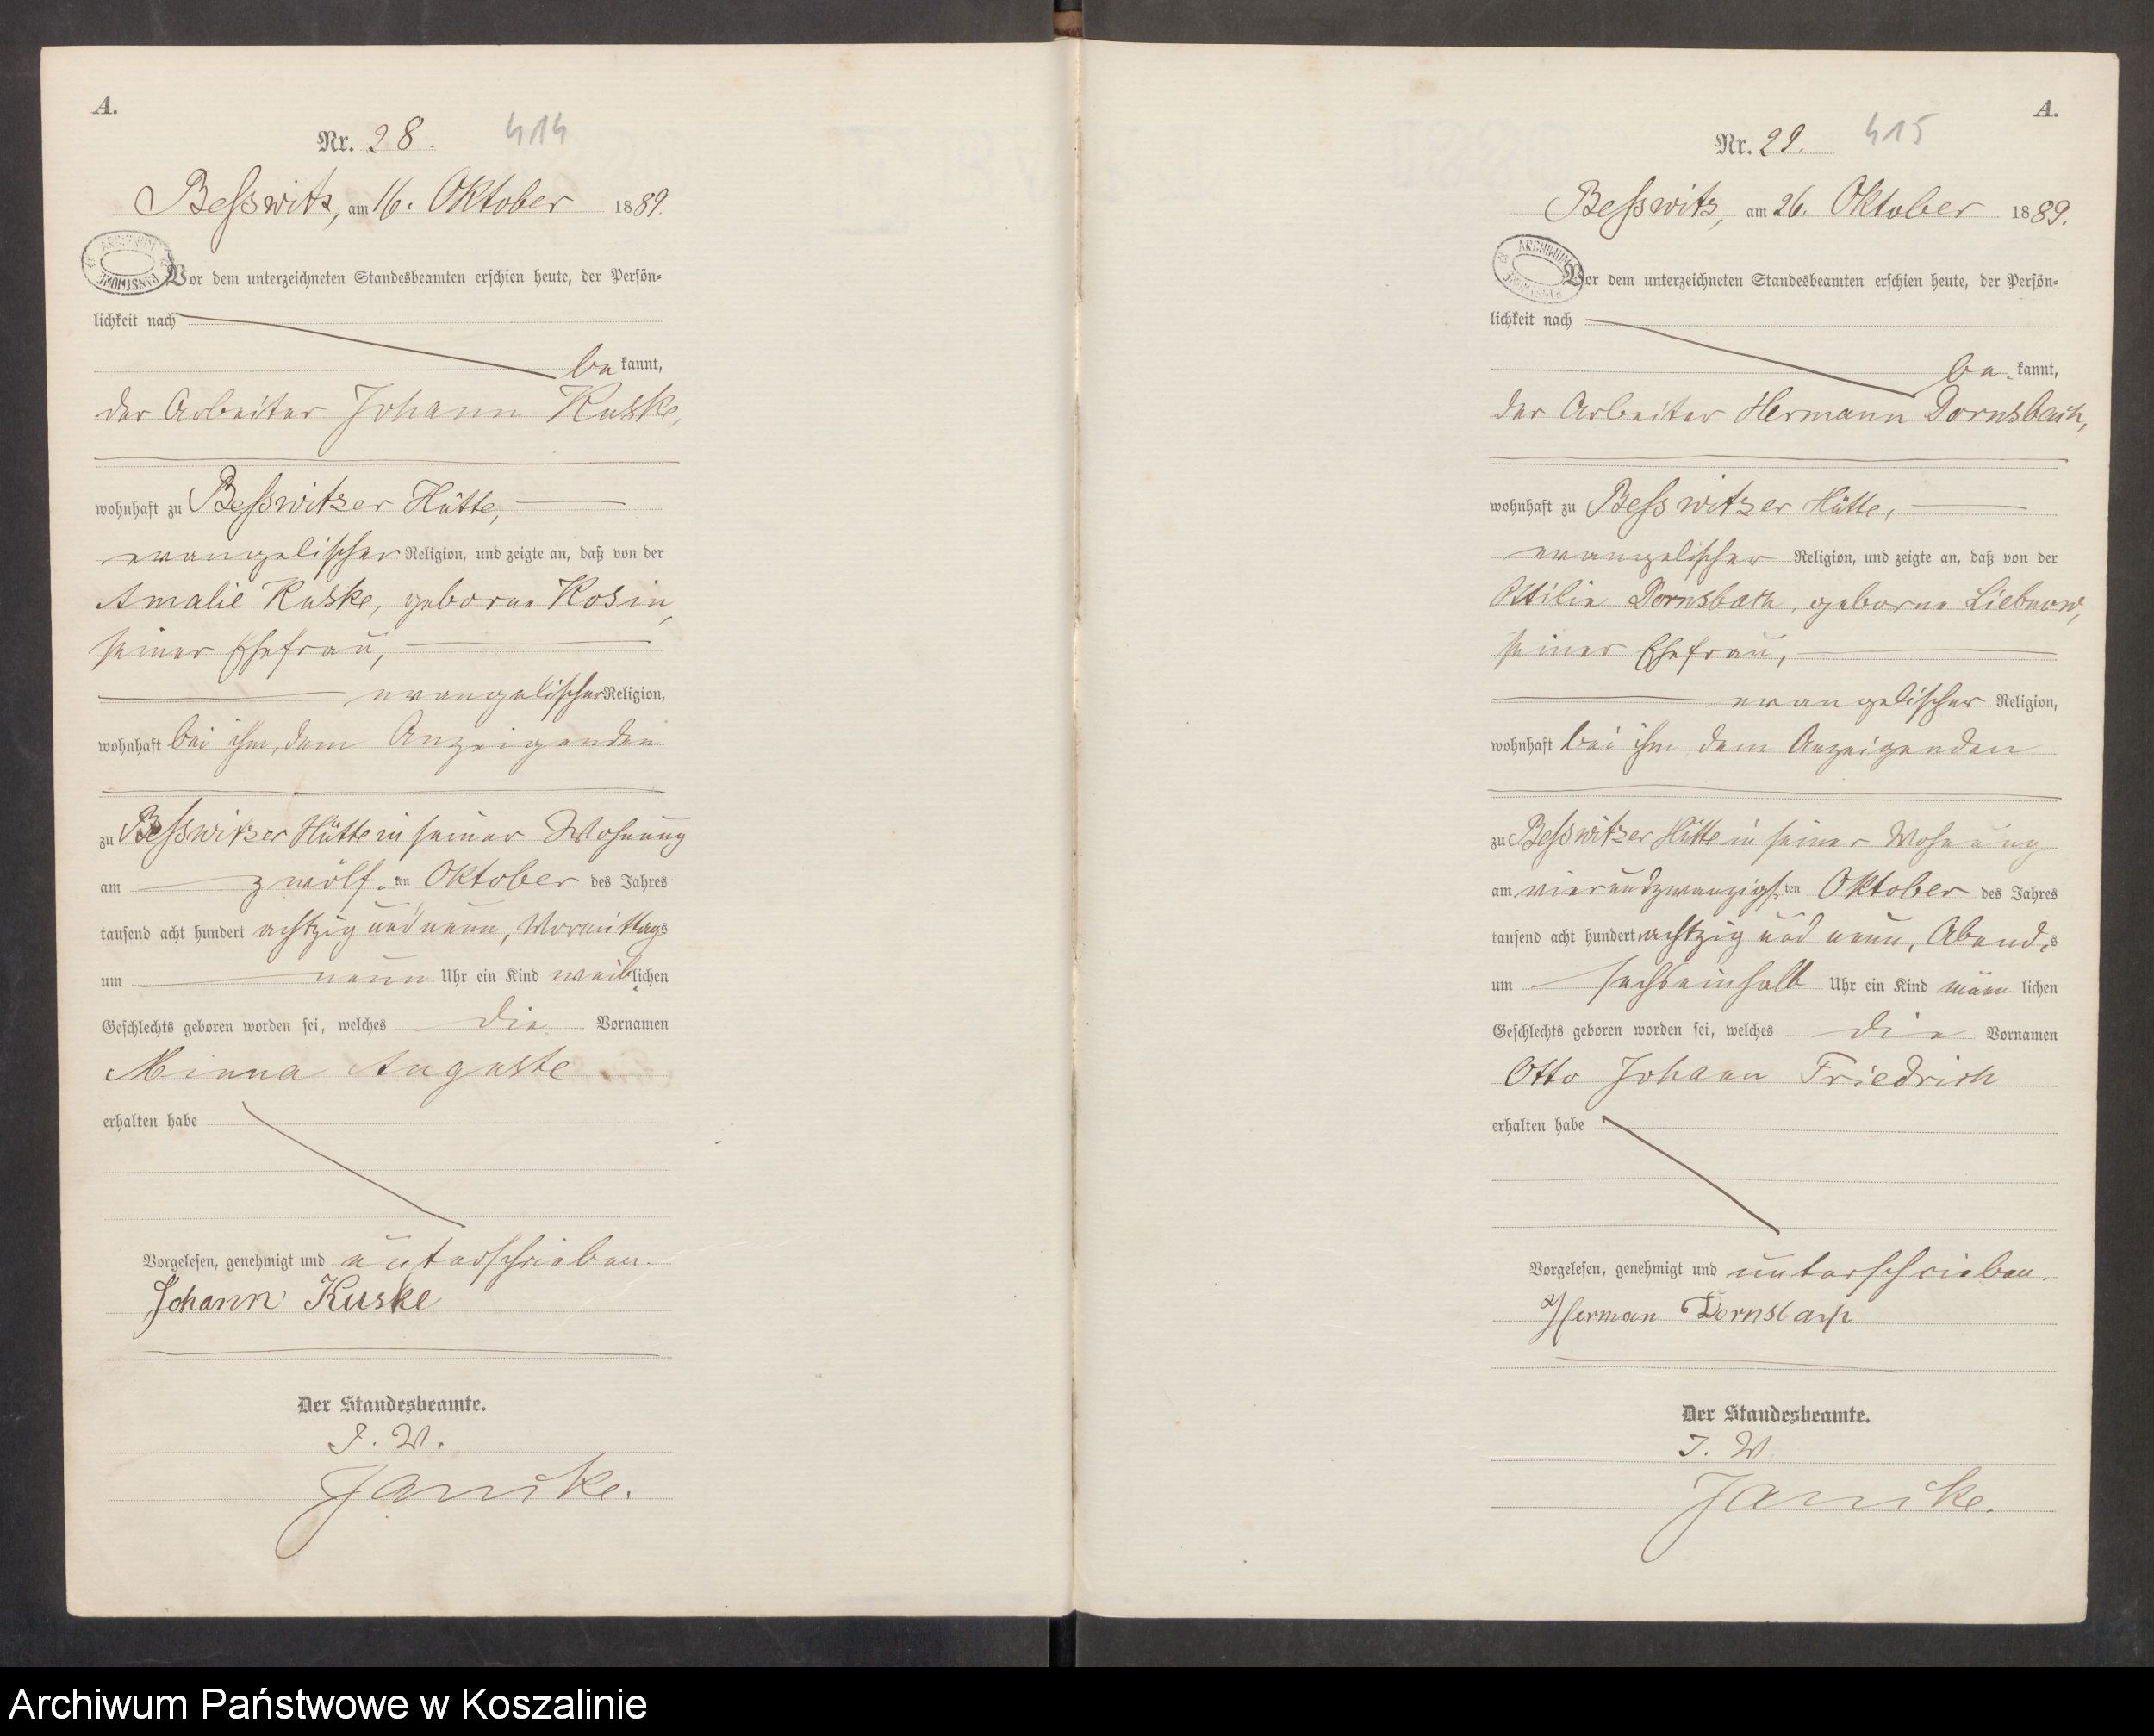 A.
Nr. 28. 414
Beſswitz, am 16. Oktober 1889.
ARCHIWUM PAŃSTWOWE
Vor dem unterzeichneten Standesbeamten erſchien heute, der Perſön-
lichkeit nach
be kannt,
der Arbeiter Johann Kuske,
wohnhaft zu Beſswitzer Hütte,
evangeliſcher Religion, und zeigte an, daß von der
Amalie Kuske, geborne Kosin,
ſeiner Ehefrau,
evangeliſcher Religion,
wohnhaft bei ihm, dem Anzeigenden
zu Beſswitzer Hütte in ſeiner Wohnung
am zwölf ten Oktober des Jahres
tauſend acht hundert achtzig und neun, Vormittags
um neun Uhr ein Kind weiblichen
Geſchlechts geboren worden ſei, welches die Vornamen
Minna Auguste
erhalten habe
Vorgeleſen, genehmigt und unterſchrieben.
Johann Kuske
Der Standesbeamte.
I. V.
Janike.
A.
Nr. 29. 415
Beſswitz, am 26. Oktober 1889.
ARCHIWUM PAŃSTWOWE
Vor dem unterzeichneten Standesbeamten erſchien heute, der Perſön-
lichkeit nach
be kannt,
der Arbeiter Hermann Dornsbach,
wohnhaft zu Beſswitzer Hütte,
evangeliſcher Religion, und zeigte an, daß von der
Ottilie Dornsbach, geborne Liebnow,
ſeiner Ehefrau,
evangeliſcher Religion,
wohnhaft bei ihm dem Anzeigenden
zu Beſswitzer Hütte in ſeiner Wohnung
am vierundzwanzigſten Oktober des Jahres
tauſend acht hundert achtzig und neun, Abends
um ſechseinhalb Uhr ein Kind männ lichen
Geſchlechts geboren worden ſei, welches die Vornamen
Otto Johann Friedrich
erhalten habe
Vorgeleſen, genehmigt und unterſchrieben.
Herman Dornsbach
Der Standesbeamte.
I. V.
Janike.
Archiwum Państwowe w Koszalinie